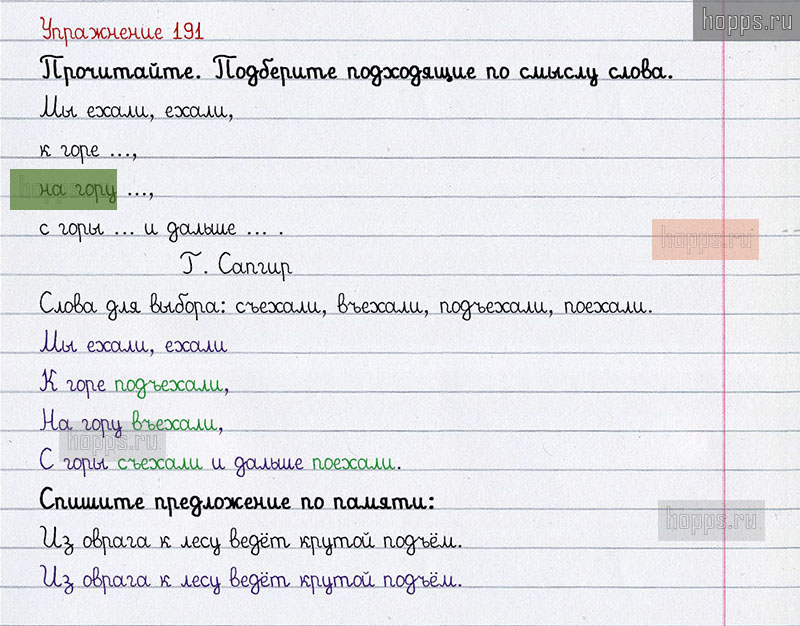 hopps.ru
Упражнение 191
Прочитайте. Подберите подходящие по смыслу слова.
Мы ехали, ехали,
к горе ...,
на гору ...,
с горы ... и дальше ... .
hopps.ru
Г. Сапгир
Слова для выбора: съехали, въехали, подъехали, поехали.
Мы ехали, ехали
К горе подъехали,
На гору въехали,
hopps.ru
С горы съехали и дальше поехали.
Спишите предложение по памяти:
hopps.ru
Из оврага к лесу ведёт крутой подъём.
Из оврага к лесу ведёт крутой подъём.